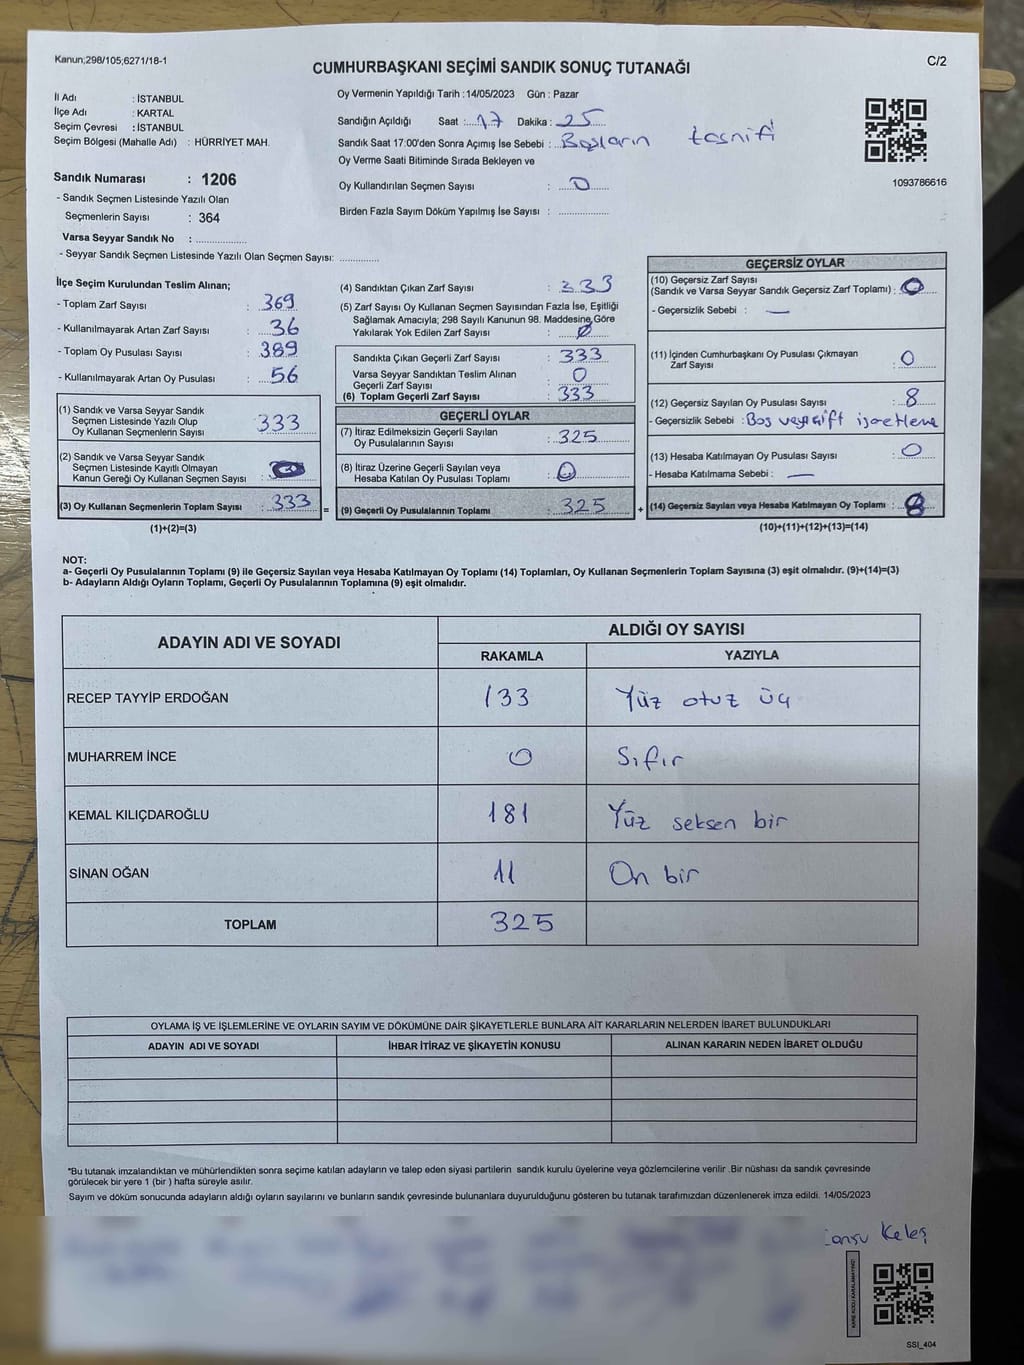 Kanun;298/105;6271/18-1
C/2
CUMHURBAŞKANI SEÇİMİ SANDIK SONUÇ TUTANAĞI
İl Adı : İSTANBUL
İlçe Adı : KARTAL
Seçim Çevresi : İSTANBUL
Seçim Bölgesi (Mahalle Adı) : HÜRRİYET MAH.
Oy Vermenin Yapıldığı Tarih :14/05/2023 Gün : Pazar
Sandığın Açıldığı Saat :17 Dakika : 25
Sandık Saat 17:00'den Sonra Açımış İse Sebebi : Boşların tasnifi
Oy Verme Saati Bitiminde Sırada Bekleyen ve
Oy Kullandırılan Seçmen Sayısı : 0
Birden Fazla Sayım Döküm Yapılmış İse Sayısı :
1093786616
Sandık Numarası : 1206
- Sandık Seçmen Listesinde Yazılı Olan
Seçmenlerin Sayısı : 364
Varsa Seyyar Sandık No :
- Seyyar Sandık Seçmen Listesinde Yazılı Olan Seçmen Sayısı:
İlçe Seçim Kurulundan Teslim Alınan;
- Toplam Zarf Sayısı : 369
- Kullanılmayarak Artan Zarf Sayısı : 36
- Toplam Oy Pusulası Sayısı : 389
- Kullanılmayarak Artan Oy Pusulası : 56
(1) Sandık ve Varsa Seyyar Sandık
Seçmen Listesinde Yazılı Olup
Oy Kullanan Seçmenlerin Sayısı : 333
(2) Sandık ve Varsa Seyyar Sandık
Seçmen Listesinde Kayıtlı Olmayan
Kanun Gereği Oy Kullanan Seçmen Sayısı :
(3) Oy Kullanan Seçmenlerin Toplam Sayısı : 333 =
(1)+(2)=(3)
(4) Sandıktan Çıkan Zarf Sayısı : 333
(5) Zarf Sayısı Oy Kullanan Seçmen Sayısından Fazla İse, Eşitliği
Sağlamak Amacıyla; 298 Sayılı Kanunun 98. Maddesine Göre
Yakılarak Yok Edilen Zarf Sayısı : 0
Sandıkta Çıkan Geçerli Zarf Sayısı : 333
Varsa Seyyar Sandıktan Teslim Alınan
Geçerli Zarf Sayısı : 0
(6) Toplam Geçerli Zarf Sayısı : 333
GEÇERLİ OYLAR
(7) İtiraz Edilmeksizin Geçerli Sayılan
Oy Pusulalarının Sayısı : 325
(8) İtiraz Üzerine Geçerli Sayılan veya
Hesaba Katılan Oy Pusulası Toplamı : 0
(9) Geçerli Oy Pusulalarının Toplamı : 325 +
GEÇERSİZ OYLAR
(10) Geçersiz Zarf Sayısı
(Sandık ve Varsa Seyyar Sandık Geçersiz Zarf Toplamı) : 0
- Geçersizlik Sebebi : —
(11) İçinden Cumhurbaşkanı Oy Pusulası Çıkmayan
Zarf Sayısı : 0
(12) Geçersiz Sayılan Oy Pusulası Sayısı : 8
- Geçersizlik Sebebi : Boş veya çift işaretleme
(13) Hesaba Katılmayan Oy Pusulası Sayısı : 0
- Hesaba Katılmama Sebebi : —
(14) Geçersiz Sayılan veya Hesaba Katılmayan Oy Toplamı : 8
(10)+(11)+(12)+(13)=(14)
NOT:
a- Geçerli Oy Pusulalarının Toplamı (9) ile Geçersiz Sayılan veya Hesaba Katılmayan Oy Toplamı (14) Toplamları, Oy Kullanan Seçmenlerin Toplam Sayısına (3) eşit olmalıdır. (9)+(14)=(3)
b- Adayların Aldığı Oyların Toplamı, Geçerli Oy Pusulalarının Toplamına (9) eşit olmalıdır.
ADAYIN ADI VE SOYADI
ALDIĞI OY SAYISI
RAKAMLA YAZIYLA
RECEP TAYYİP ERDOĞAN 133 Yüz otuz üç
MUHARREM İNCE 0 Sıfır
KEMAL KILIÇDAROĞLU 181 Yüz seksen bir
SİNAN OĞAN 11 On bir
TOPLAM 325
OYLAMA İŞ VE İŞLEMLERİNE VE OYLARIN SAYIM VE DÖKÜMÜNE DAİR ŞİKAYETLERLE BUNLARA AİT KARARLARIN NELERDEN İBARET BULUNDUKLARI
ADAYIN ADI VE SOYADI İHBAR İTİRAZ VE ŞİKAYETİN KONUSU ALINAN KARARIN NEDEN İBARET OLDUĞU
*Bu tutanak imzalandıktan ve mühürlendikten sonra seçime katılan adayların ve talep eden siyasi partilerin sandık kurulu üyelerine veya gözlemcilerine verilir .Bir nüshası da sandık çevresinde
görülecek bir yere 1 (bir ) hafta süreyle asılır.
Sayım ve döküm sonucunda adayların aldığı oyların sayılarını ve bunların sandık çevresinde bulunanlara duyurulduğunu gösteren bu tutanak tarafımızdan düzenlenerek imza edildi. 14/05/2023
Keleş
SSI_404